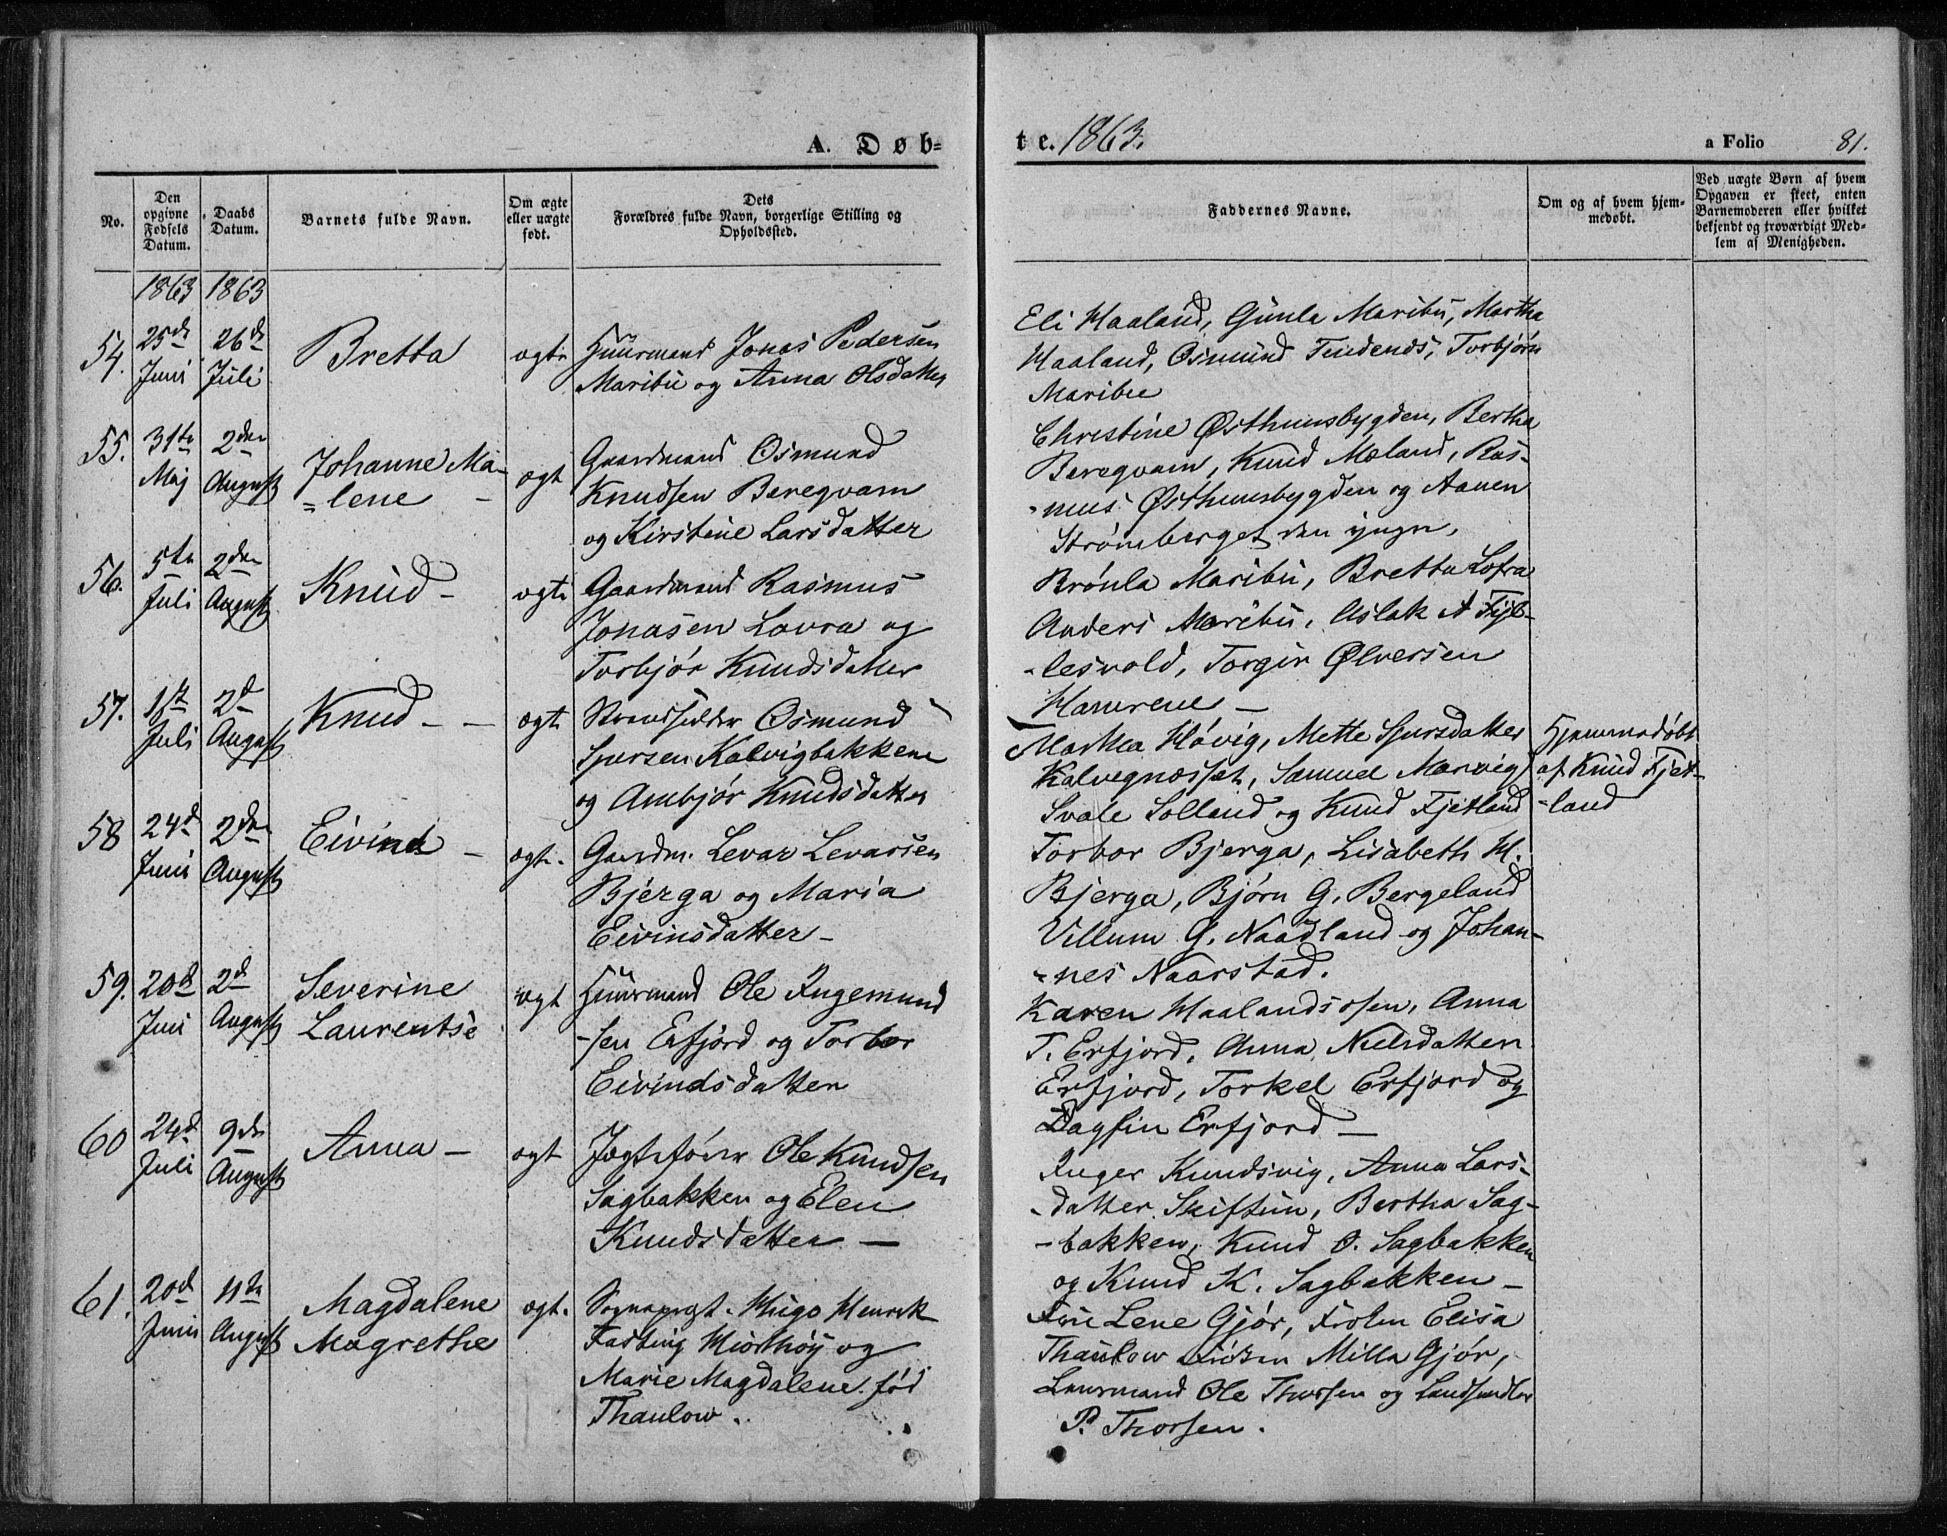 A. Døb-
te. 1863.
a Folio 81.
No.
Den opgivne Fødsels Datum.
Daabs Datum.
Barnets fulde Navn.
Om ægte eller uægte født.
Dets
Forældres fulde Navn, borgerlige Stilling og
Opholdssted.
Faddernes Navne.
Om og af hvem hjem-
medøbt.
Ved uægte Børn af hvem
Opgaven er skeet, enten
Barnemoderen eller hvilket
bekjendt og troværdigt Med-
lem af Menigheden.
1863 1863
54. 25de Juni 26de Juli
Bretta
ægte
Huusmand Jonas Pedersen
Maribu og Anna Olsdatter
Eli Haaland, Gunla Maribu, Martha
Haaland, Osmund Tindenes, Torbjørn
Maribu
55. 31te Maj 2den August
Johanne Ma-
=lene -
ægt
Gaardmand Osmund
Knudsen Beregvam
og Kirstine Larsdatter
Christine Østhunsbygden, Bertha
Beregvam, Knud Mæland, Ras-
-mus Østhunsbygden og Aanen
Strømberget den yngr,
56. 5te Juli 2den August
Knud -
ægte
Gaardmand Rasmus
Jonasen Lovra og
Torbjør Knudsdatter
Brønla Maribu, Bretta Lofra
Anders Maribu, Aslak A Fjel-
-lesvold, Torgir Ølversen
Hamrene -
57. 1ste Juli 2d August
Knud - -
ægt
Strandsidder Osmund
Sjursen Kalvigbakkene
og Ambjør Knudsdatter
Marthea Høvig, Mette Sjursdatter
Kalvegnæsset, Samuel Marvig
Svale Solland og Knud Fjetland
Hjemmedøbt
af Knud Fjet-
-land
58 24d Juni 2den August
Eivind -
ægte.
Gaardm. Levar Levarsen
Bjerga og Maria
Eivinsdatter -
Torbor Bjerga, Lisabeth H.
Bjerga, Bjørn G. Bergeland
Villum G. Naadland og Johan-
-nes Naarstad.
59. 20d Juni 2d August
Severine
Laurentse
ægt
Huusmand Ole Ingemund
-sen Erfjord og Torbor
Eivindsdatter
Karen Haalandsosen, Anna
T. Erfjord, Anna Nielsdatter
Erfjord, Torkel Erfjord og
Dagfin Erfjord -
60 24d Juli 9de August
Anna -
ægt
Jægtefører Ole Knudsen
Sagbakken og Elen
Knudsdatter -
Inger Knudsvig, Anna Lars-
-datter Skiftun, Bertha Sag-
-bakken, Knud O. Sagbakken
og Knud K. Sagbakken -
61. 20d Juni 11te August
Magdalene
Magrethe
ægt.
Sognepræst Hugo Henrik
Fasting Miørhøy og
Marie Magdalene fød
Thaulow.
Fru Lene Gjør, Frøken Elisa
Thaulow Frøken Milla Gjør,
Lensmand Ole Thorsen og Landhandler
P. Thorsen.